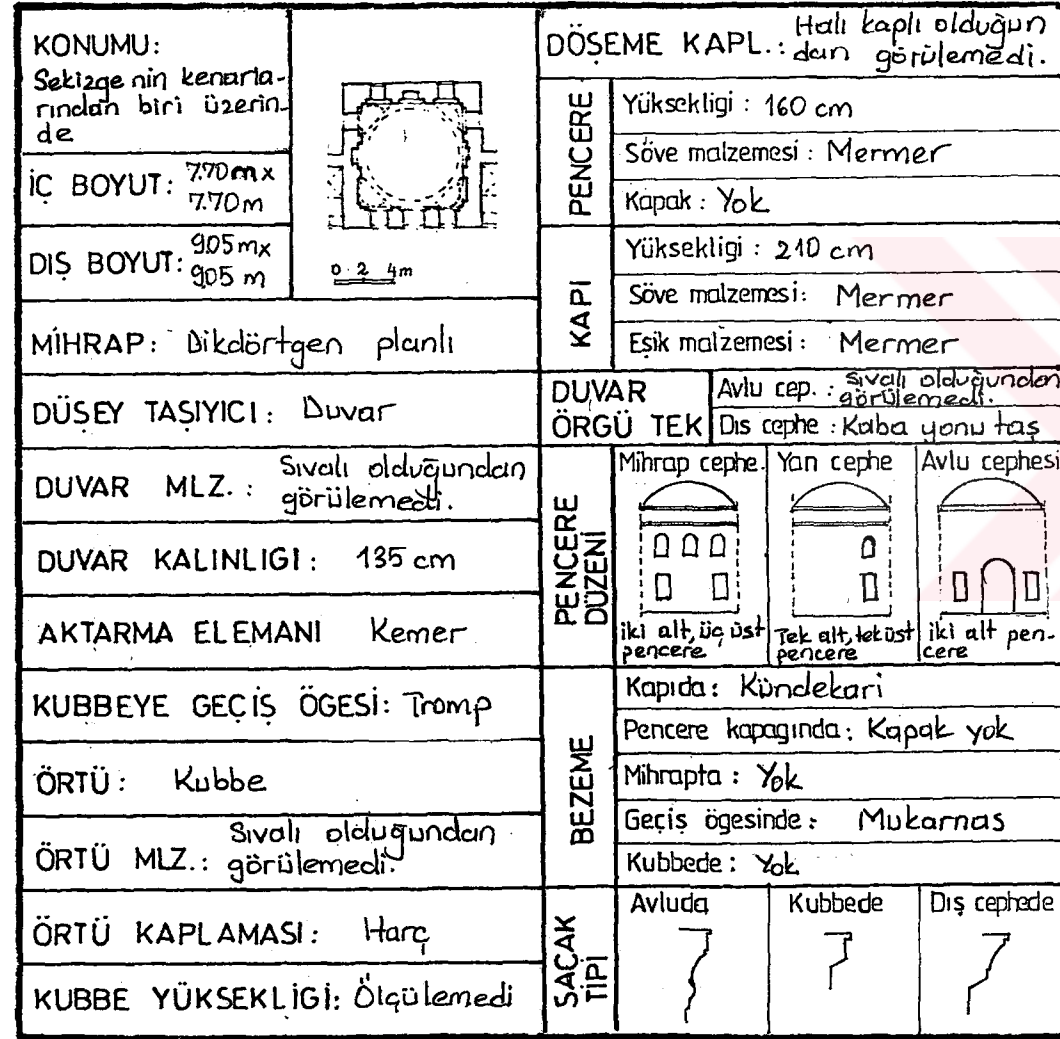 KONUMU:
Sekizgenin kenarla-
rından biri üzerin-
de
İÇ BOYUT: 7.70 m x
7.70 m
DIŞ BOYUT: 905 mx
905 m
0 2 4m
MİHRAP: Dikdörtgen planlı
DÜŞEY TAŞIYICI: Duvar
DUVAR MLZ.: Sıvalı olduğundan
görülemedi.
DUVAR KALINLIGI: 135 cm
AKTARMA ELEMANI Kemer
KUBBEYE GEÇİŞ ÖGESİ: Tromp
ÖRTÜ: Kubbe
ÖRTÜ MLZ.: Sıvalı olduğundan
görülemedi.
ÖRTÜ KAPLAMASI: Harç
KUBBE YÜKSEKLİGİ: Ölçülemedi
DÖŞEME KAPL.: Halı kaplı olduğun
dan görülemedi.
PENCERE
Yüksekligi: 160 cm
Söve malzemesi: Mermer
Kapak: Yok
KAPI
Yüksekligi: 210 cm
Söve malzemesi: Mermer
Eşik malzemesi: Mermer
DUVAR
ÖRGÜ TEK
Avlu cep.: Sıvalı olduğundan
görülemedi.
Dıs cephe: Kaba yonu taş
PENCERE
DÜZENİ
Mihrap cephe.
iki alt, üç üst
pencere
Yan cephe
Tek alt, tek üst
pencere
Avlu cephesi
iki alt pen-
cere
BEZEME
Kapıda: Kündekari
Pencere kapagında: Kapak yok
Mihrapta: Yok
Geçiş ögesinde: Mukarnas
Kubbede: Yok
SAÇAK
TİPİ
Avluda
Kubbede
Dış cephede